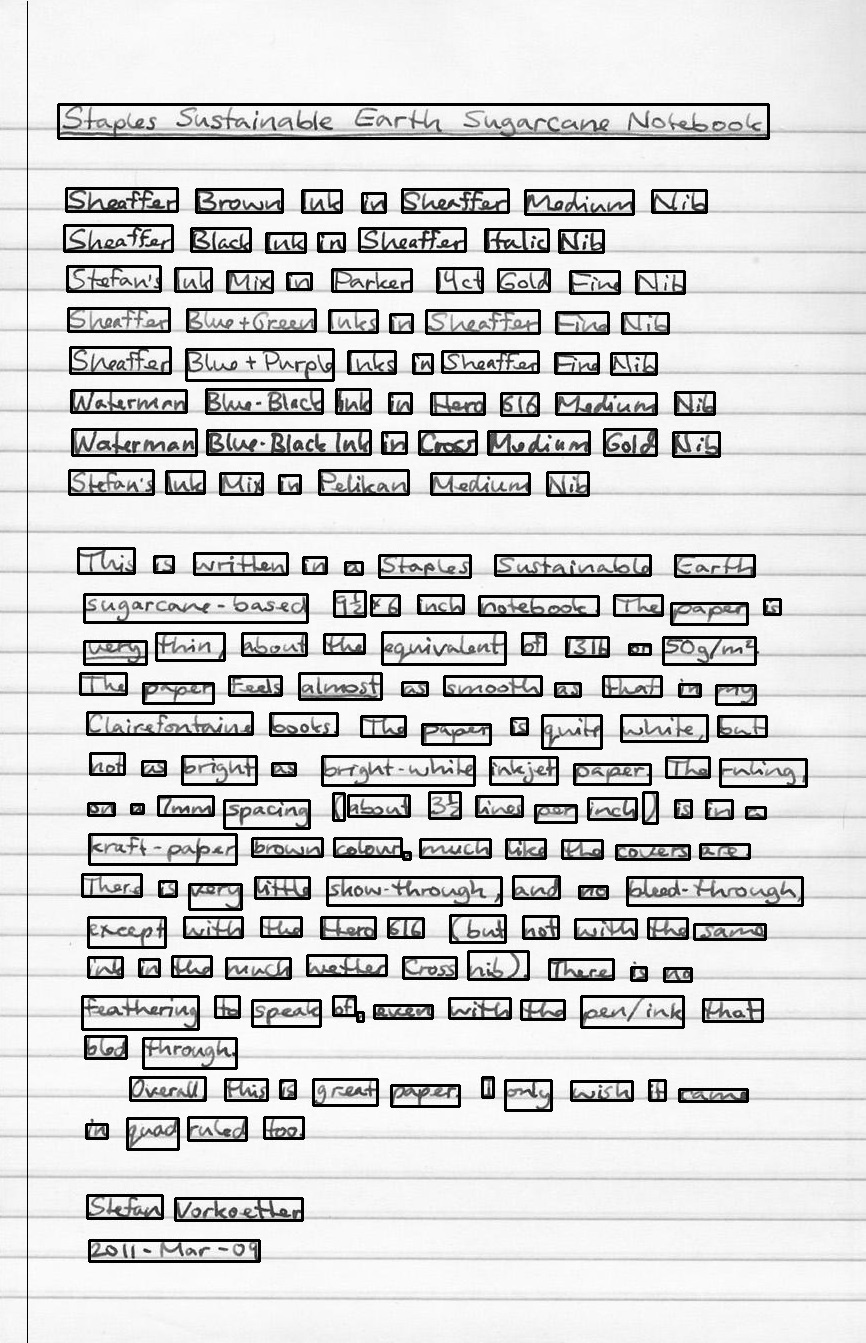 Staples Sustainable Earth Sugarcane Notebook
Sheaffer Brown Ink in Sheaffer Medium Nib
Sheaffer Black Ink in Sheaffer Italic Nib
Stefan's Ink Mix in Parker 14ct Gold Fine Nib
Sheaffer Blue+Green Inks in Sheaffer Fine Nib
Sheaffer Blue+Purple Inks in Sheaffer Fine Nib
Waterman Blue-Black Ink in Hero 616 Medium Nib
Waterman Blue-Black Ink in Cross Medium Gold Nib
Stefan's Ink Mix in Pelikan Medium Nib
This is written in a Staples Sustainable Earth
sugarcane-based 9½×6 inch notebook. The paper is
very thin, about the equivalent of 13lb or 50g/m².
The paper feels almost as smooth as that in my
Clairefontaine books. The paper is quite white, but
not as bright as bright-white inkjet paper. The ruling,
on a 7mm spacing (about 3½ lines per inch) is in a
kraft-paper brown colour, much like the covers are.
There is very little show-through, and no bleed-through,
except with the Hero 616 (but not with the same
ink in the much wetter Cross nib). There is no
feathering to speak of, even with the pen/ink that
bled through.
Overall this is great paper. I only wish it came
in quad ruled too.
Stefan Vorkoetter
2011-Mar-09